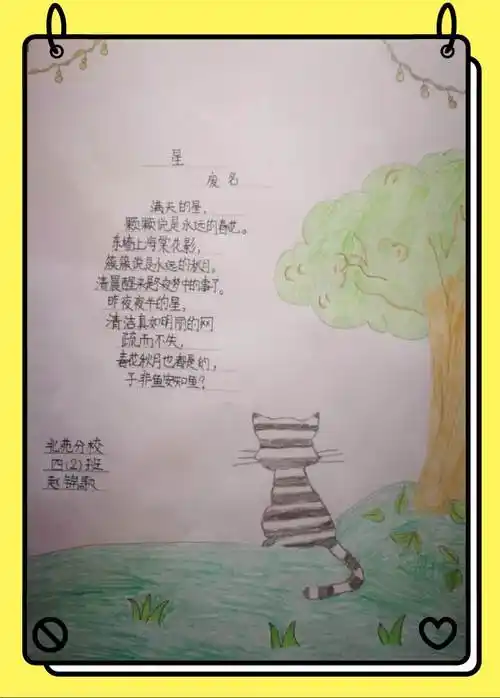 星
废名
满天的星,
颗颗说是永远的春花。
东墙上海棠花影,
簇簇说是永远的秋月。
清晨醒来是冬夜梦中的事了。
昨夜夜半的星,
清洁真如明丽的网
疏而不失,
春花秋月也都是的,
子非鱼安知鱼?
北苑分校
四(2)班
赵锦歌